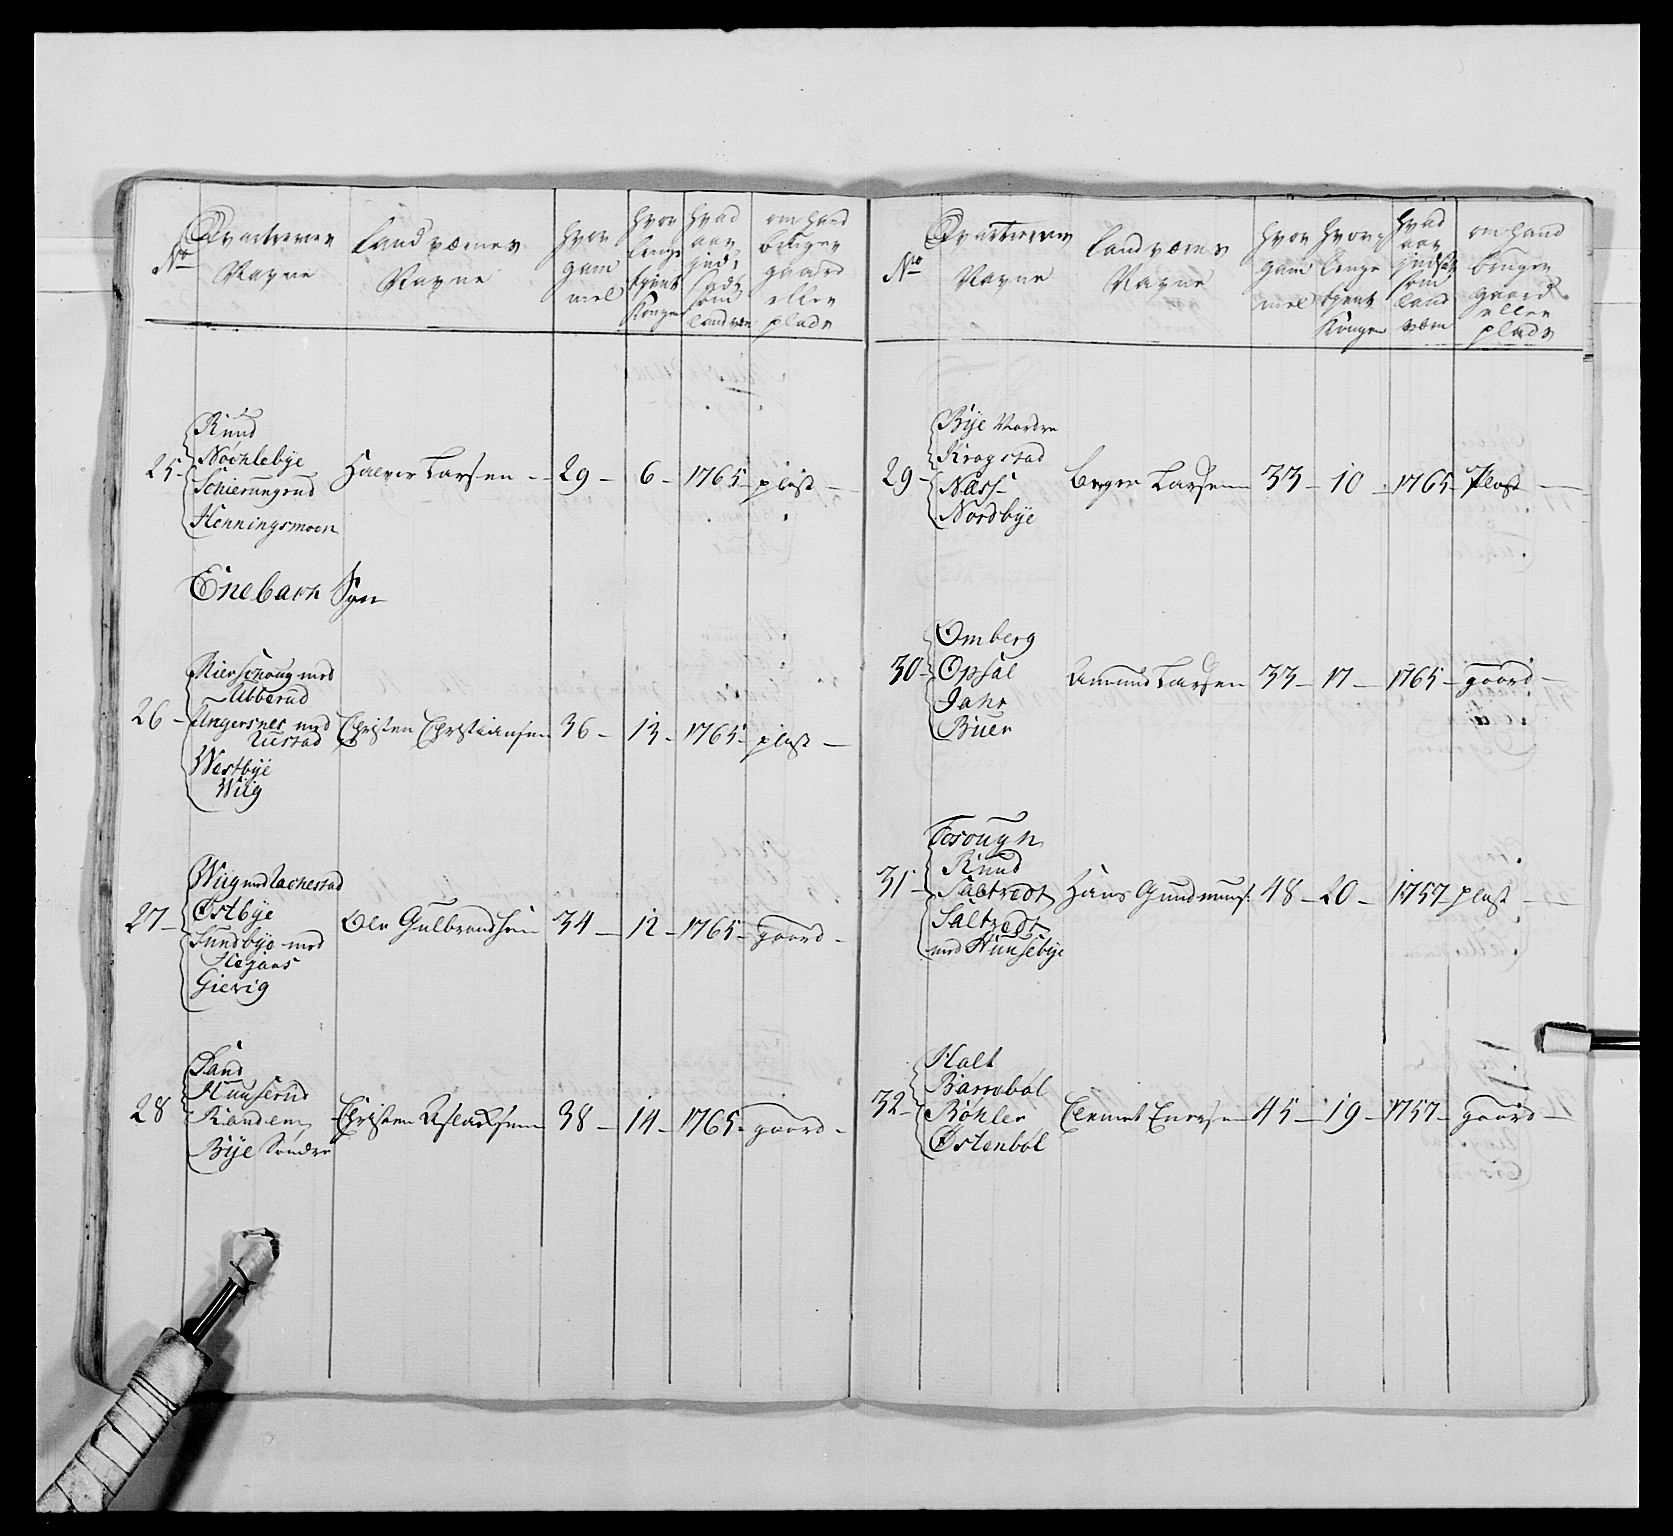 No
Qvarterens
Nafne
Landværnes
Nafne
hvor
gam
mel
hvor
lenge
tient
Kongen
hvad
aar
ind
sadt
som
landvæ
om hand
bruger
gaard
eller
plads
25 -
Ruud
Nochlebye
Schierungrud
Henningsmoen
Halvor Larsen - 29 - 6 - 1765 - plast -
Enebach Sgn
26 -
Mierschoug med
Abberud
Ungersnes med
Rustad
Westbye
Wiig
Christen Christiansen 36 - 13 - 1765 - plast -
27 -
Wiig med Rachestad
Østbye
Sundbye med
Gierig
Ole Gulbrandsen 34 - 12 - 1765 - gaard -
28
Sand
Huuserud
Randem
Bye Søndre
Christen Aslachsen 38 - 14 - 1765 - gaard -
No
Qvarterens
Nafne
Landværns
Nafne
hvor
gam
mel
hvor
lenge
tient
Kongen
hvad
aar
indsat
som
land
værn
om hand
bruger
gaard
eller
plads
29 -
Bye Nordre
Kragstad
Næss
Nordbye
Larsen 33 - 10 - 1765 - Plast -
30 -
Omberg
Opsal
Jahr
Buer
Amund Larsen 33 - 17 - 1765 - gaard -
31 -
Ruud
Saltvedt
Saltvedt
med Huusebye
Hans Gundmuns: 48 - 20 - 1757 - plast -
32 -
Holt
Barrebøl
Bøhler
Østenbøl
45 - 19 - 1757 - gaard -